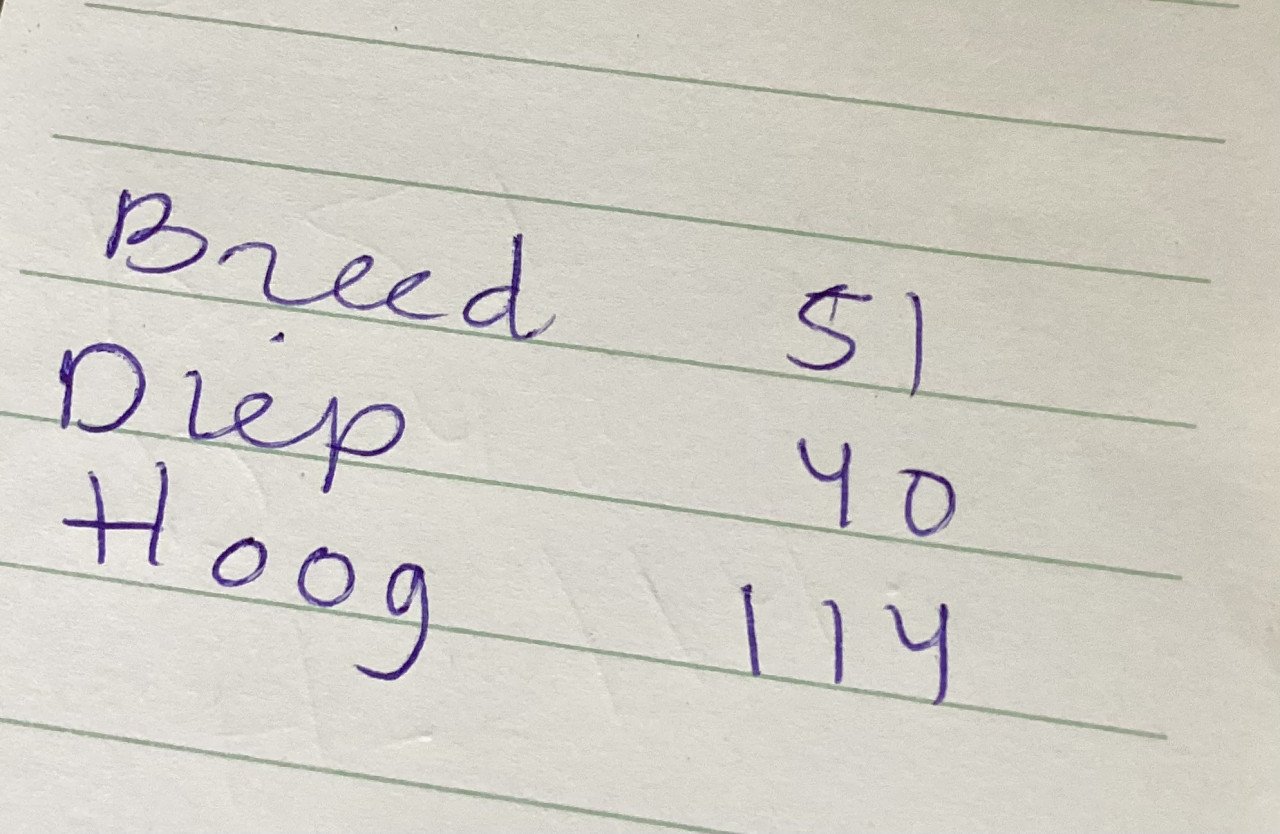 Breed 51
Diep 40
Hoog 114